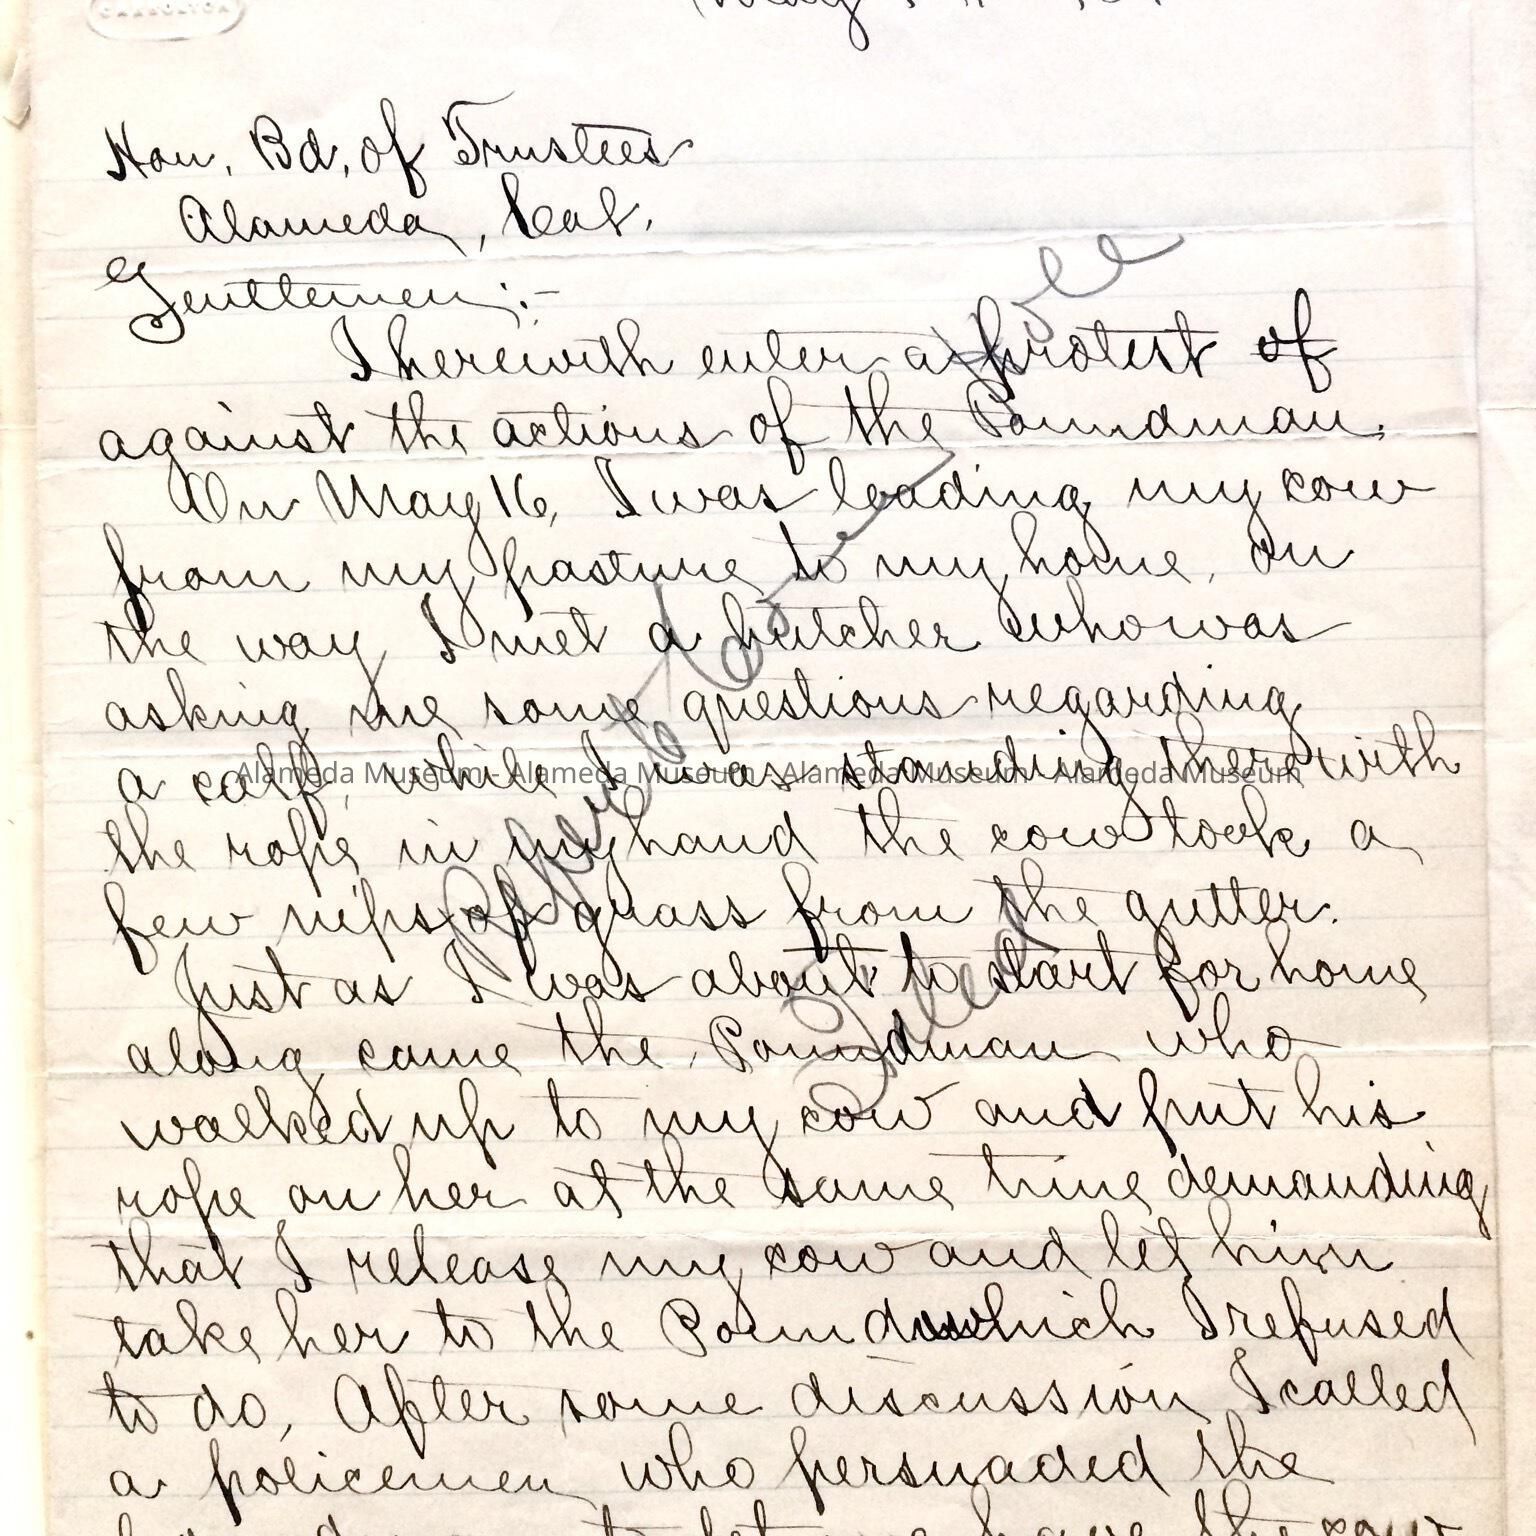 May
Hon. Bd. of Trustees
Alameda, Cal.
Gentlemen:-
I herewith enter a protest of
against the actions of the Poundman.
On May 16, I was leading my cow
from my pasture to my home, on
the way I met a butcher who was
asking me some questions regarding
a calf, while I was standing there with
Alameda Museum - Alameda Museum - Alameda Museum - Alameda Museum
the rope in my hand the cow took a
few nips of grass from the gutter.
Just as I was about to start for home
along came the Poundman who
walked up to my cow and put his
rope on her at the same time demanding
that I release my cow and let him
take her to the Pound which I refused
to do. After some discussion I called
a policemen who persuaded the
to let me have the cow
Filed